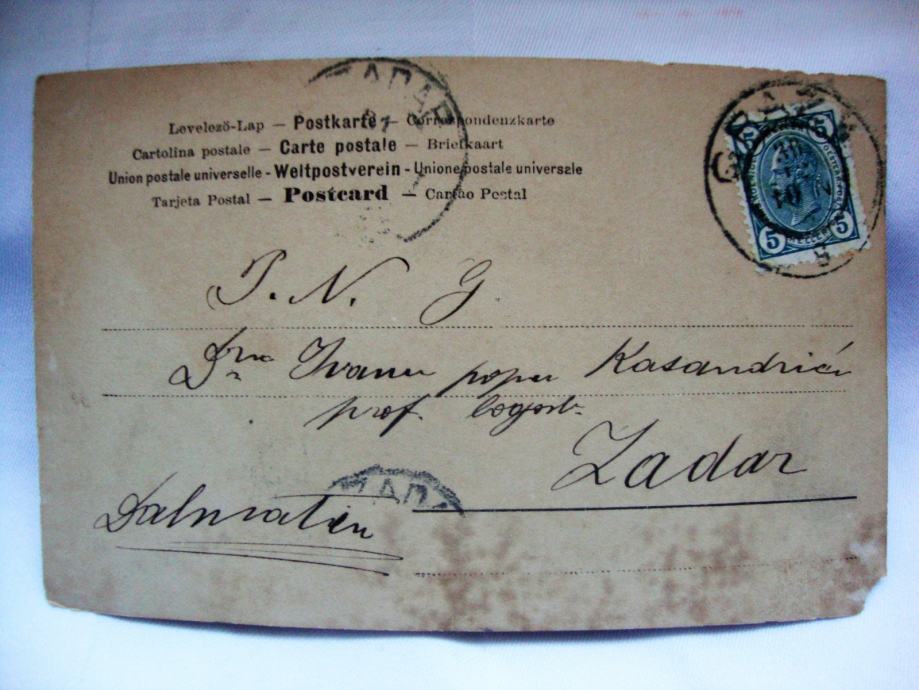 Levelező-Lap — Postkarte — Correspondenzkarte
Cartolina postale — Carte postale — Briefkaart
Union postale universelle - Weltpostverein - Unione postale universale
Tarjeta Postal — Postcard — Cartão Postal
P. N. G
Dru Ivanu popu Kasandriću
prof. bogosl.
Zadar
Dalmatien
5 5
5 5
ZADAR
ZARA
GRAZ